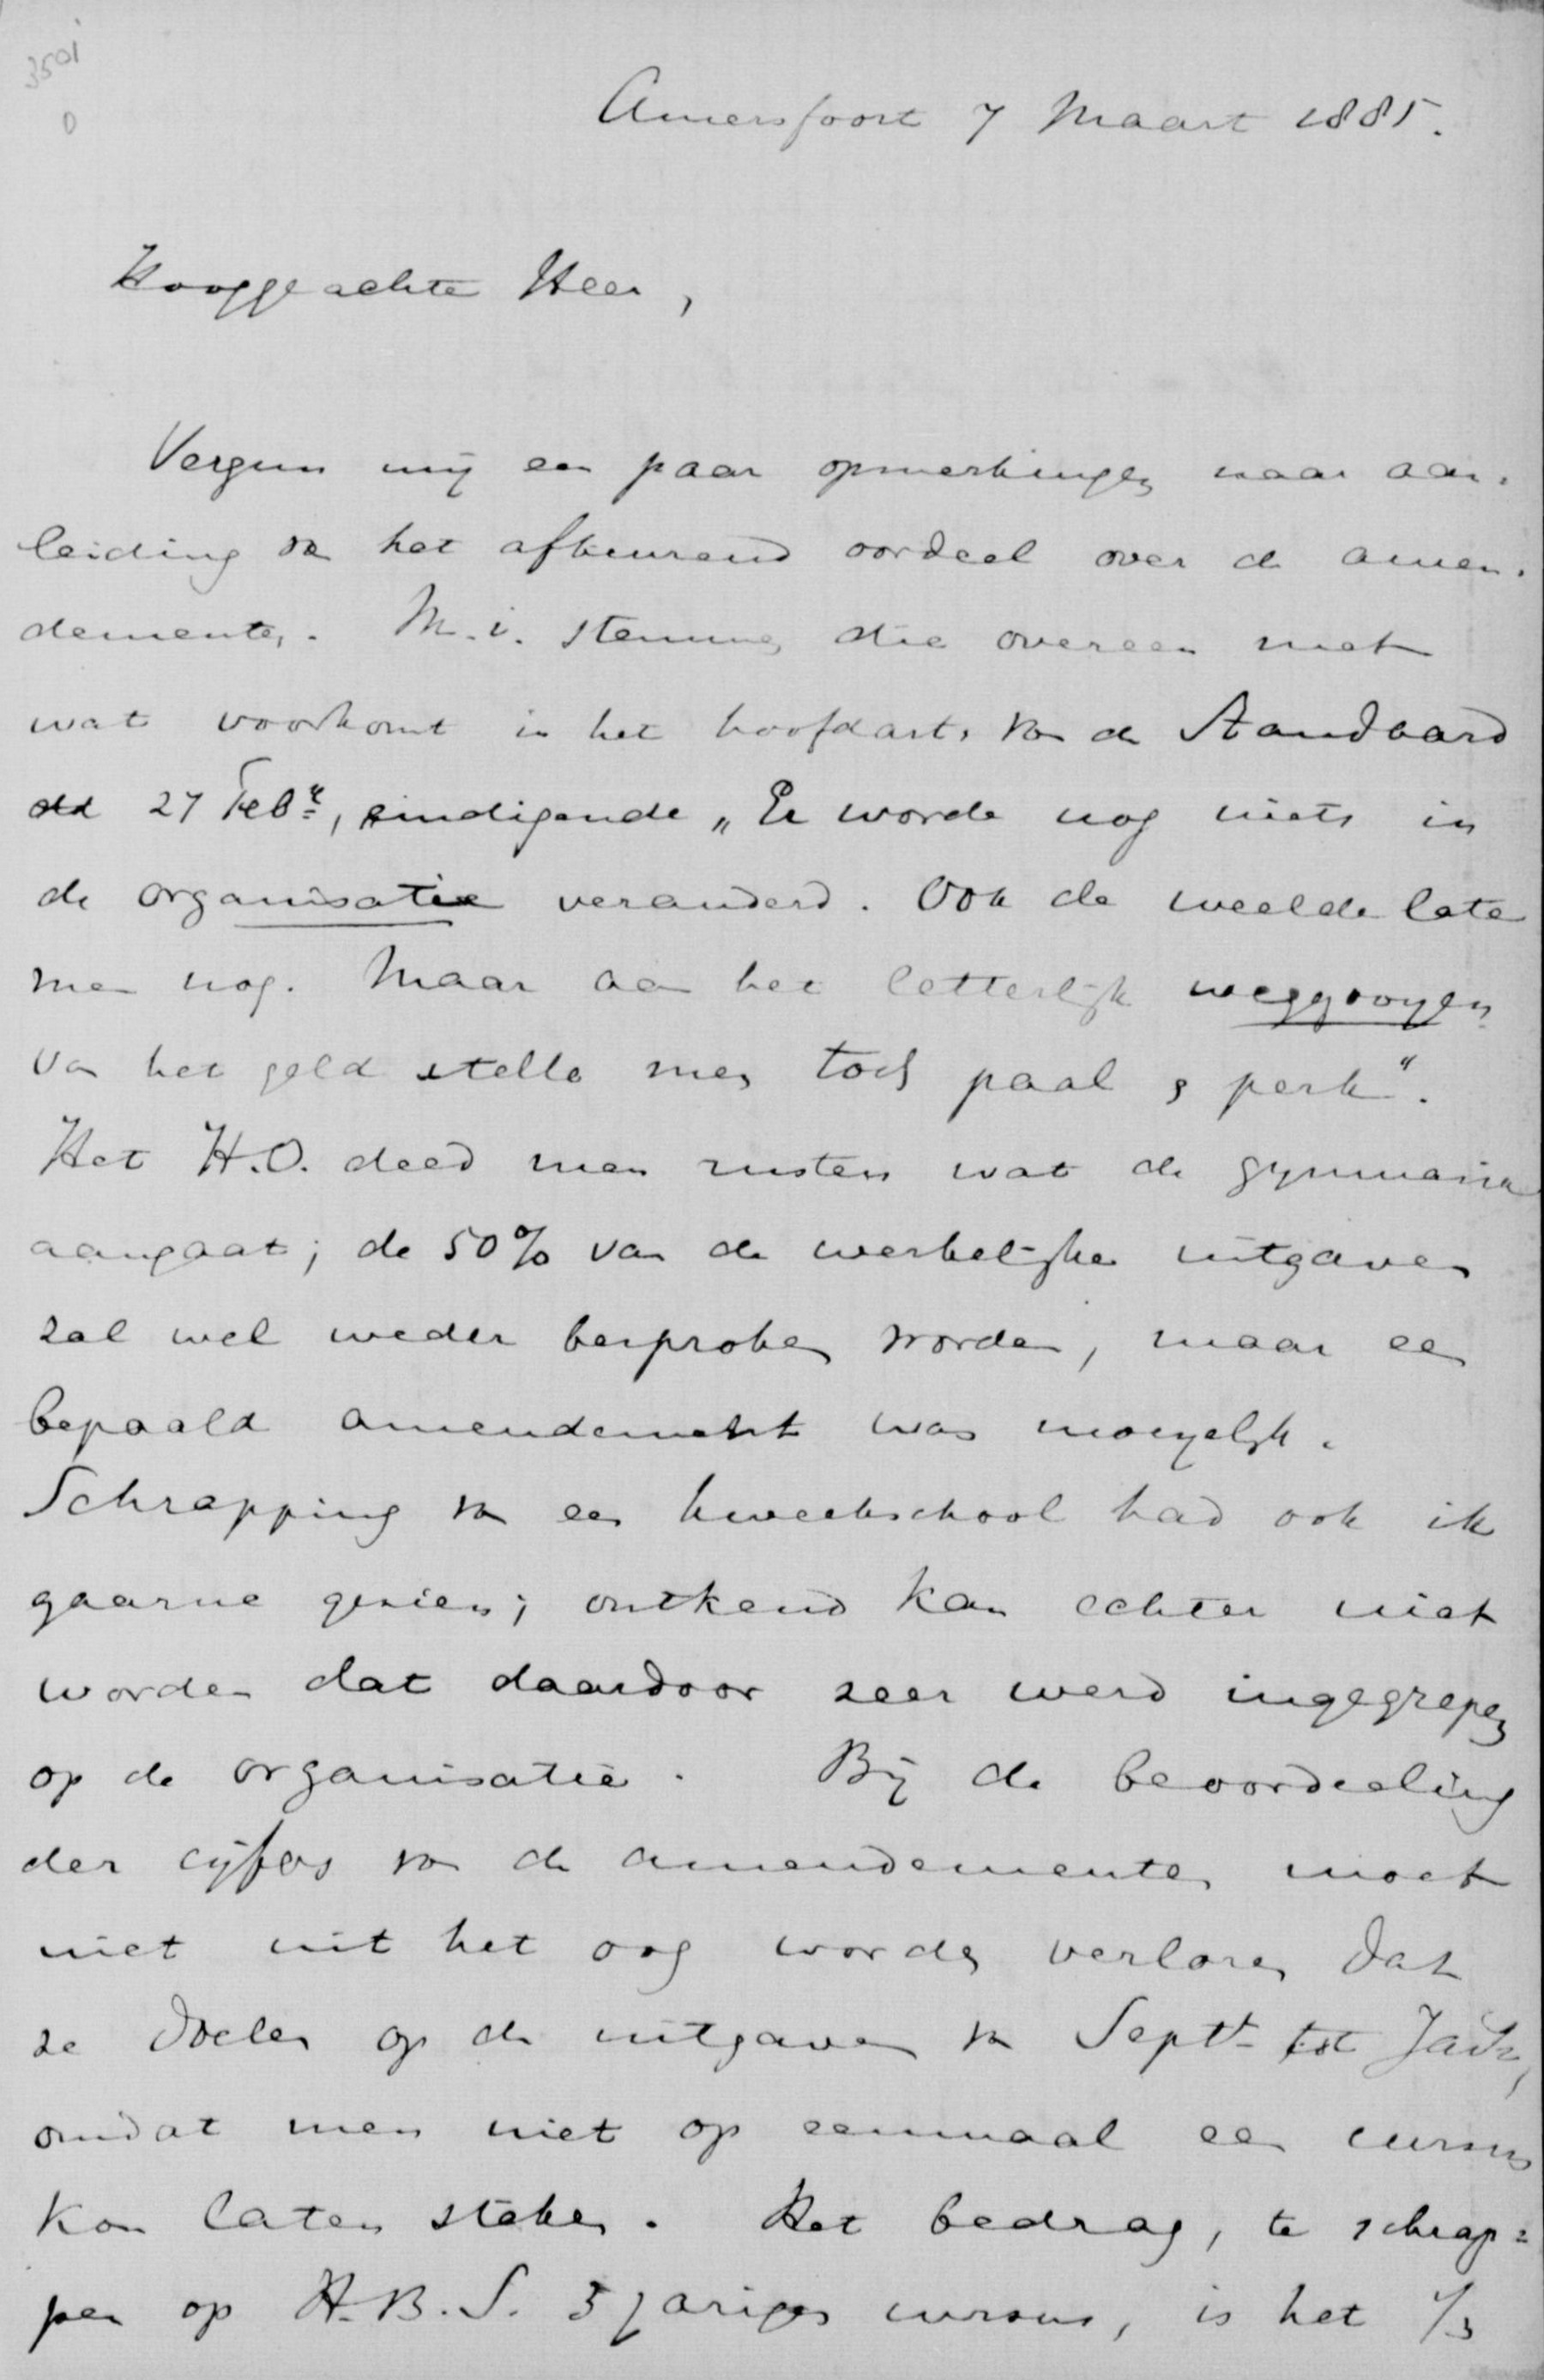 3501
0
Amersfoort 7 Maart 1885.
Hooggeachte Heer,
Vergun mij een paar opmerkingen naar aan-
leiding van het afkeurend oordeel over de amen-
dementen. M.i. stemmen die overeen met
wat voorkomt in het hoofdart. van de Standaard
dd 27 Feb., eindigende „Er worde nog niets in
de organisatie veranderd. Ook de weelde late
men nog. Maar aan het letterlijk weggooyen
van het geld stelle men toch paal & perk".
Het H.O. deed men rusten wat de gymnasia
aangaat; de 50% van de werkelijke uitgaven
zal wel weder besproken worden, maar een
bepaald amendement was moeyelijk.
Schrapping van een kweekschool had ook ik
gaarne gezien; ontkend kan echter niet
worden dat daardoor zeer werd ingegrepen
op de organisatie. Bij de beoordeeling
der cijfers van de amendementen moet
niet uit het oog worden verloren dat
ze doelen op de uitgaven van Sept. tot Jan.,
omdat men niet op eenmaal een cursus
kon laten staken. Het bedrag, te schrap=
pen op H.B.S. 5 jarigen cursus, is het 1/3